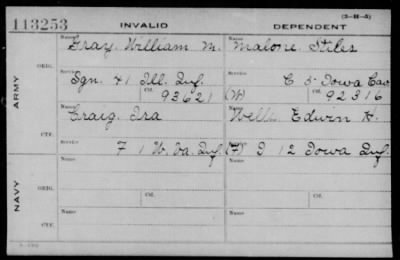 113253 INVALID (3-H-5) DEPENDENT
Name Name
Gray, William M. Malone Stiles
ORIG. Service Service
Sgn. 41 Ill. Inf. C 5 Iowa Cav
Ctf. Ctf.
93621 (W) 92316
ARMY
Name Name
Craig, Ira Wells Edwin H.
CTF. Service
F 1 W. Va. Inf. (F) I 12 Iowa Inf.
Name Name
ORIG. Service Ctf. Ctf.
NAVY
Name Name
CTF.